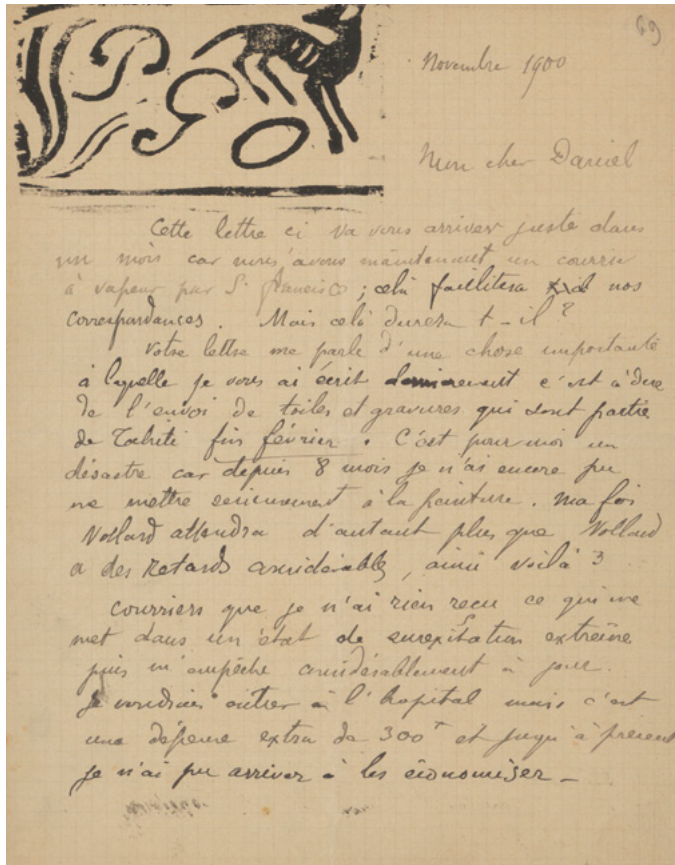 69
Novembre 1900
Mon cher Daniel
Cette lettre ci va vous arriver juste dans
un mois car nous avons maintenant un courrier
à vapeur par St francisco ; celà facilitera nos
correspondances. Mais celà durera t-il ?
Votre lettre me parle d'une chose importante
à laquelle je vous ai écrit dernièrement c'est à dire
de l'envoi de toiles et gravures qui sont partie
de Tahiti fin février. C'est pour moi un
désastre car depuis 8 mois je n'ai encore pu
me mettre serieusement à la peinture. Ma foi
Vollard attendra d'autant plus que Vollard
a des retards considérables, ainsi voilà 3
courriers que je n'ai rien reçu ce qui me
met dans un état de surexitation extrême
puis m'empêche considérablement à jour.
Je voudrais entrer à l'hopital mais c'est
une dépense extra de 300f et jusqu'à présent
je n'ai pu arriver à les économiser _